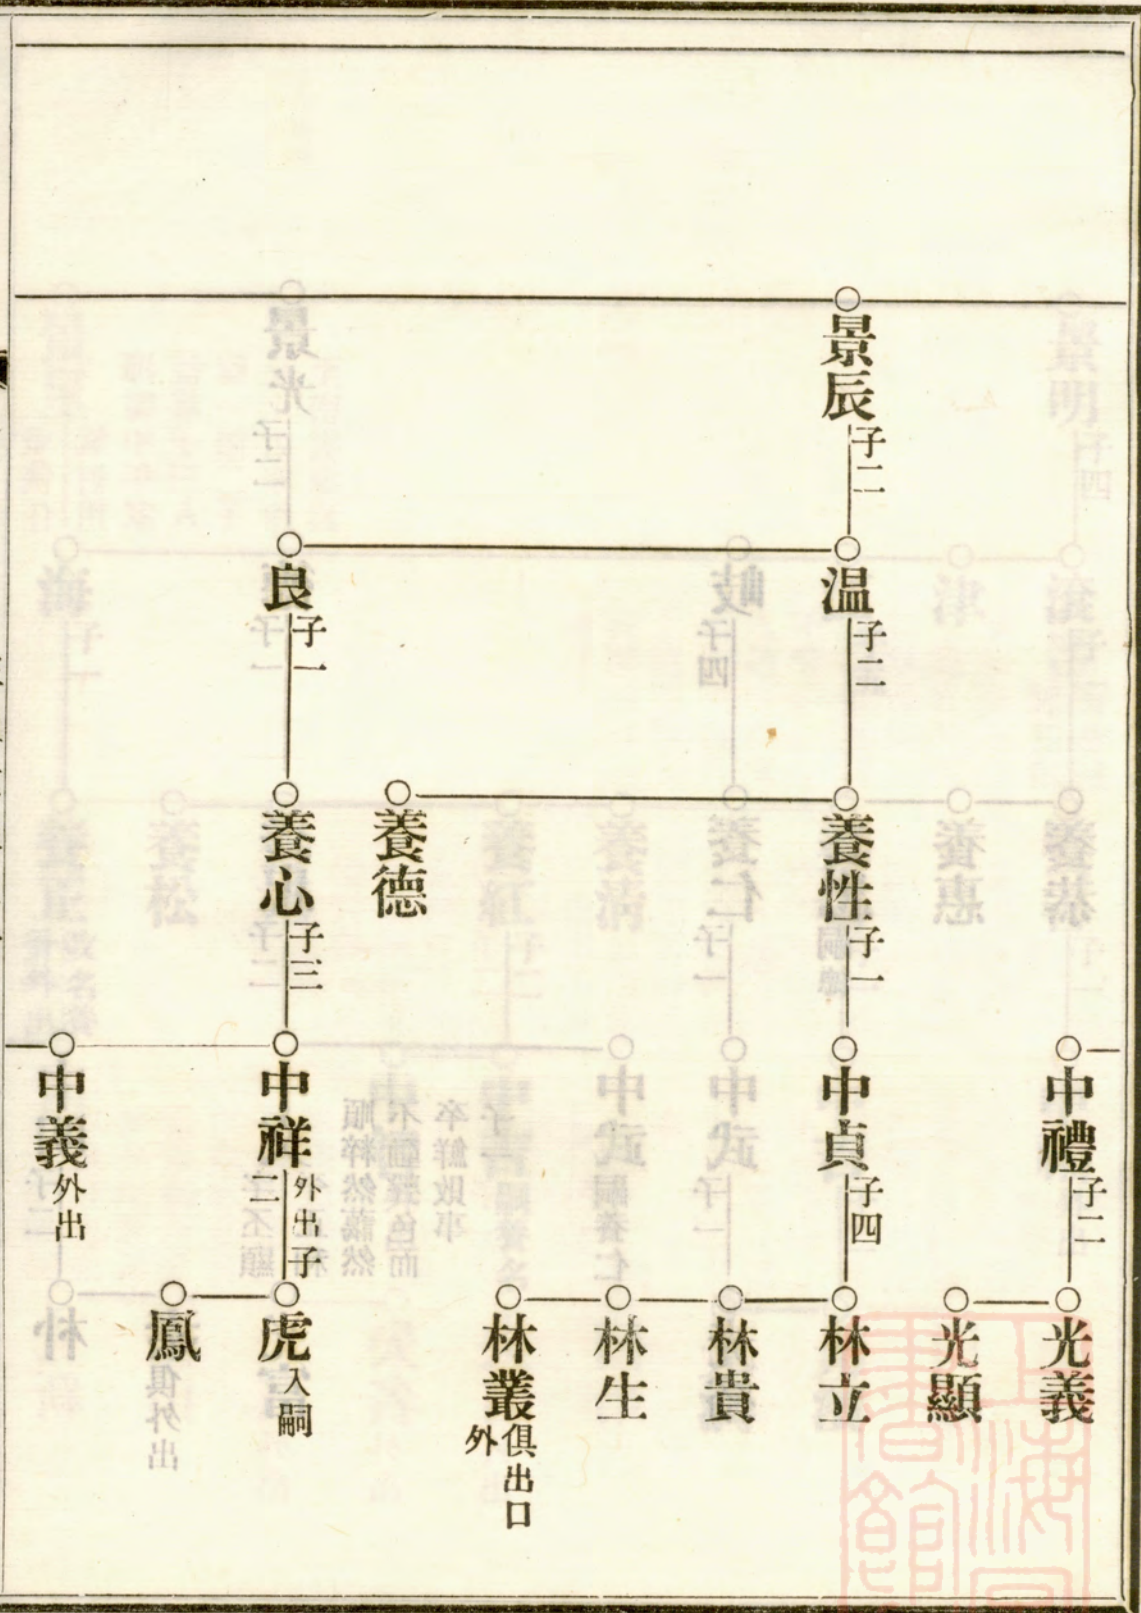 景辰 子二
温 子二
良 子一
養性 子一
養德
養心 子三
中禮 子二
中貞 子四
中祥 外出子二
中義 外出
光義
光顯
林立
林貴
林生
林叢 俱出口外
虎 入嗣
鳳